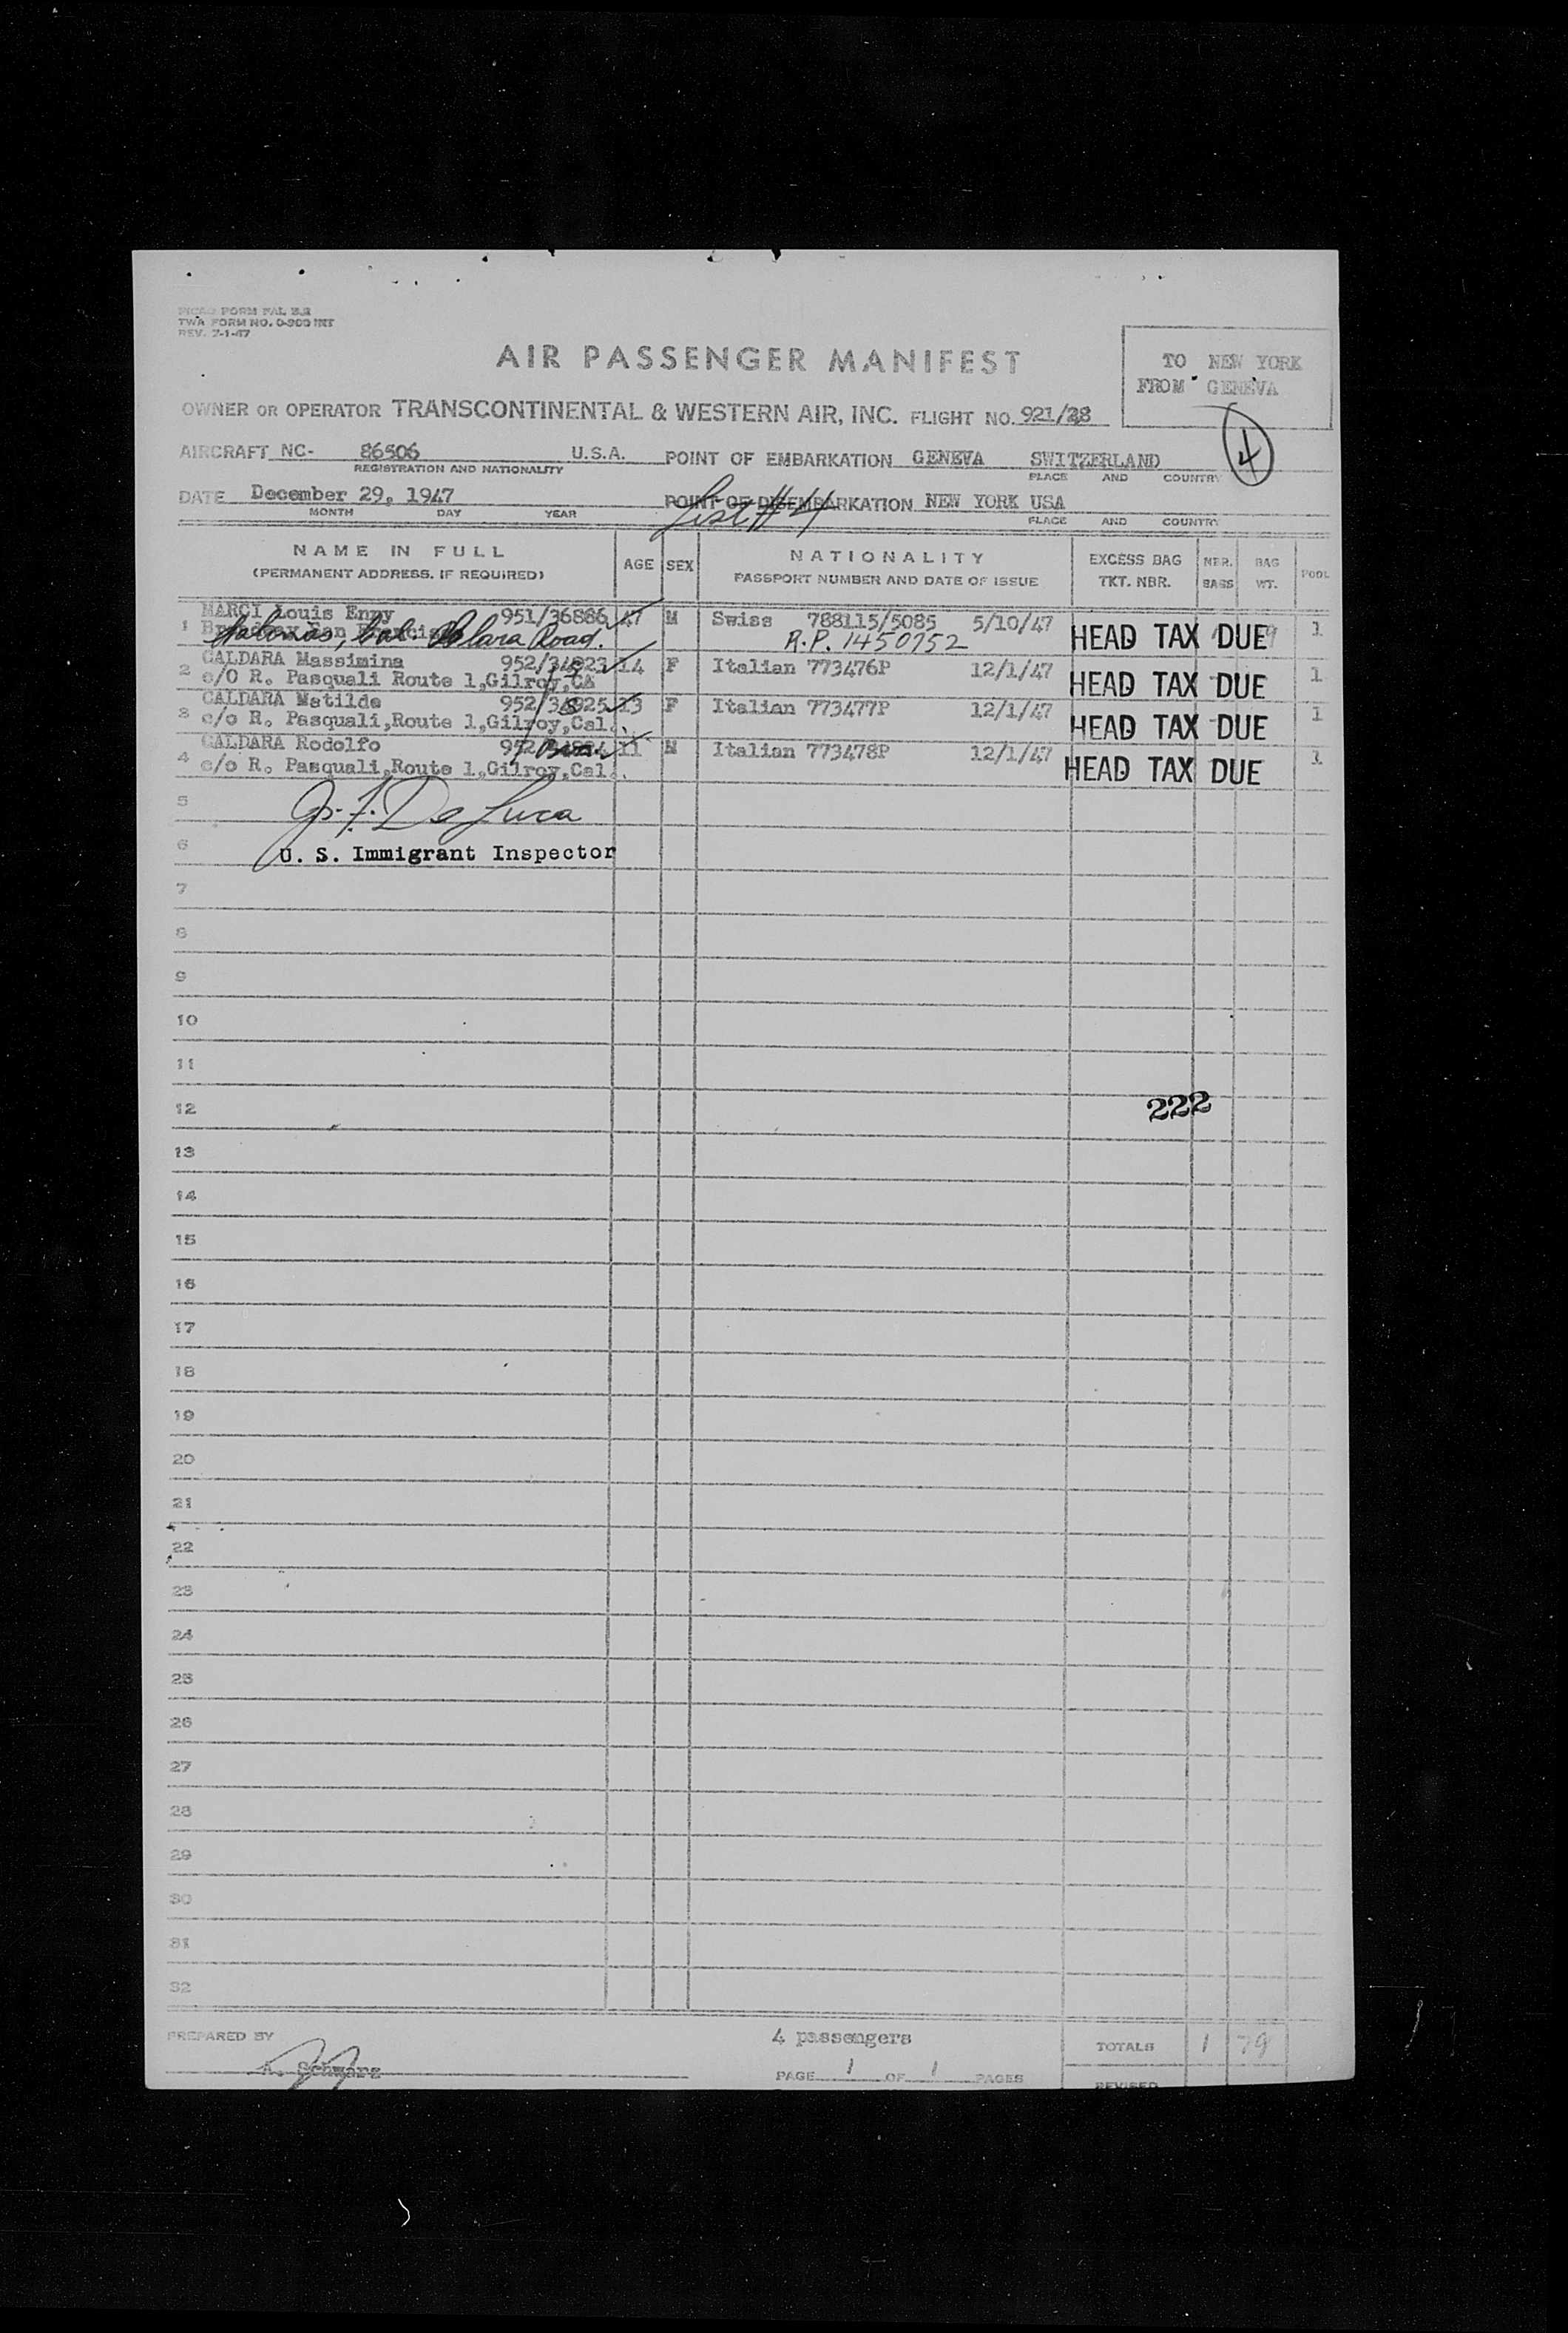 PICAO FORM FAL 3.2
TWA FORM NO. O-900 INT
REV. 7-1-47
AIR PASSENGER MANIFEST
TO NEW YORK
FROM GENEVA
OWNER OR OPERATOR TRANSCONTINENTAL & WESTERN AIR, INC. FLIGHT NO. 921/28
4
AIRCRAFT NC- 86506 U.S.A. POINT OF EMBARKATION GENEVA SWITZERLAND
REGISTRATION AND NATIONALITY PLACE AND COUNTRY
DATE December 29, 1947 POINT OF DISEMBARKATION NEW YORK USA
MONTH DAY YEAR PLACE AND COUNTRY
List #4
NAME IN FULL AGE SEX NATIONALITY EXCESS BAG NBR. BAG POOL
(PERMANENT ADDRESS, IF REQUIRED) PASSPORT NUMBER AND DATE OF ISSUE TKT. NBR. BAGS WT.
1 MARCI Louis Enny 951/36886 47 M Swiss 788115/5085 5/10/47 HEAD TAX DUE 1
Cal. Road. R.P. 1450752
2 CALDARA Massimina 952/34823 14 F Italian 773476P 12/1/47 HEAD TAX DUE 1
c/O R. Pasquali Route 1,Gilroy,CA
3 CALDARA Matilde 952/34825 13 F Italian 773477P 12/1/47 HEAD TAX DUE 1
c/o R. Pasquali,Route 1,Gilroy,Cal.
4 CALDARA Rodolfo 11 M Italian 773478P 12/1/47 HEAD TAX DUE 1
c/o R. Pasquali,Route 1,Gilroy,Cal.
5 De Luca
6 U. S. Immigrant Inspector
7
8
9
10
11
12 222
13
14
15
16
17
18
19
20
21
22
23
24
25
26
27
28
29
30
31
32
PREPARED BY 4 passengers TOTALS 1 79
A. Schwarz PAGE 1 OF 1 PAGES
REVISED